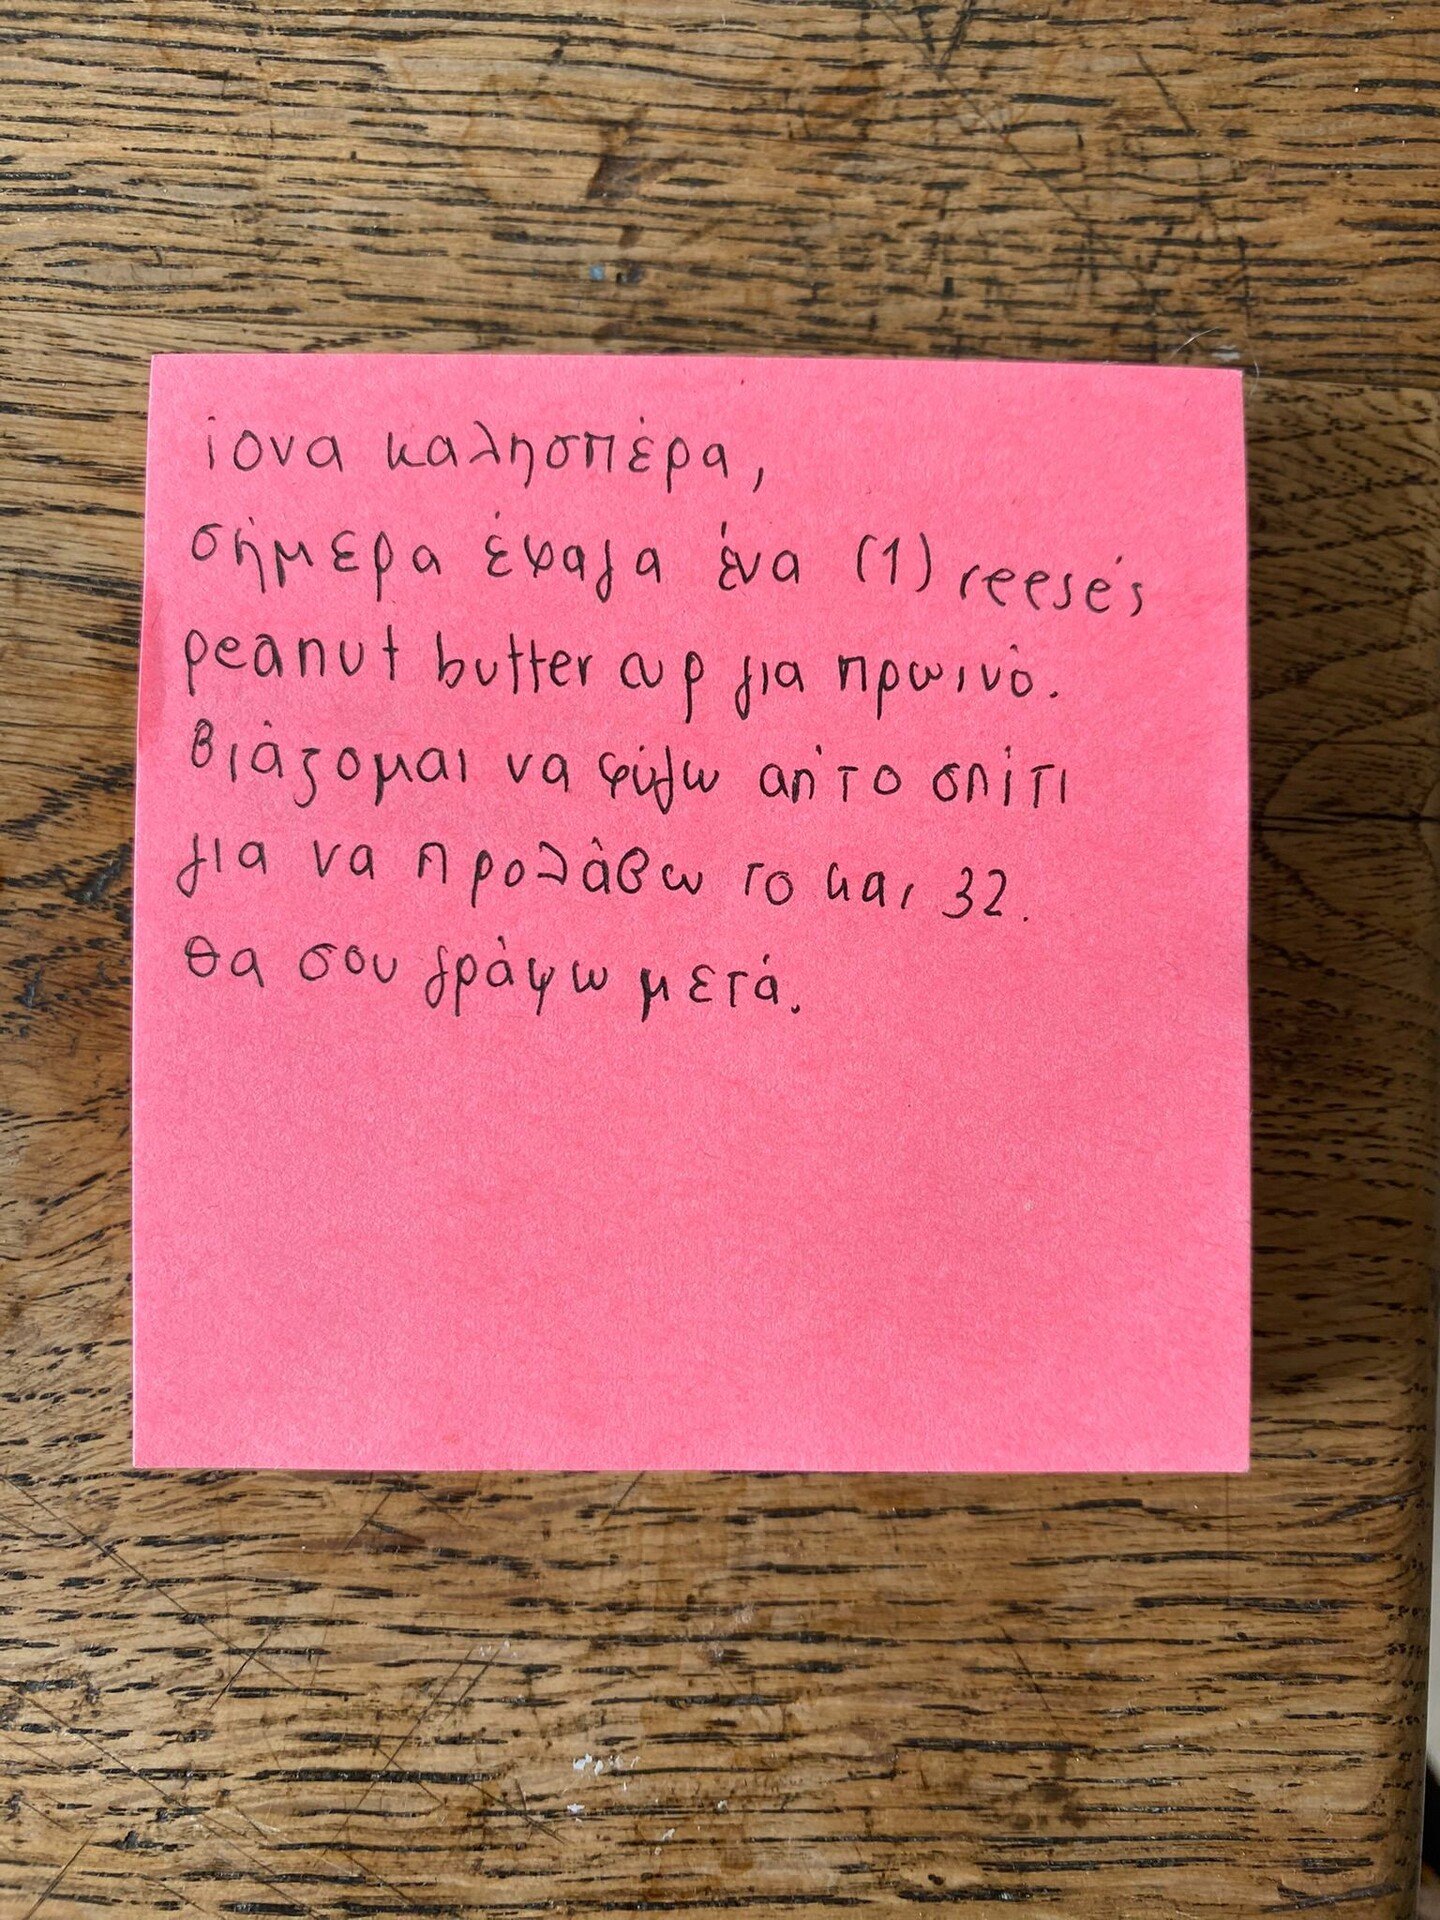 ίονα καλησπέρα,
σήμερα έφαγα ένα (1) reese's
peanut butter cup για πρωινό.
βιάζομαι να φύγω απ'το σπίτι
για να προλάβω το και 32.
θα σου γράψω μετά.